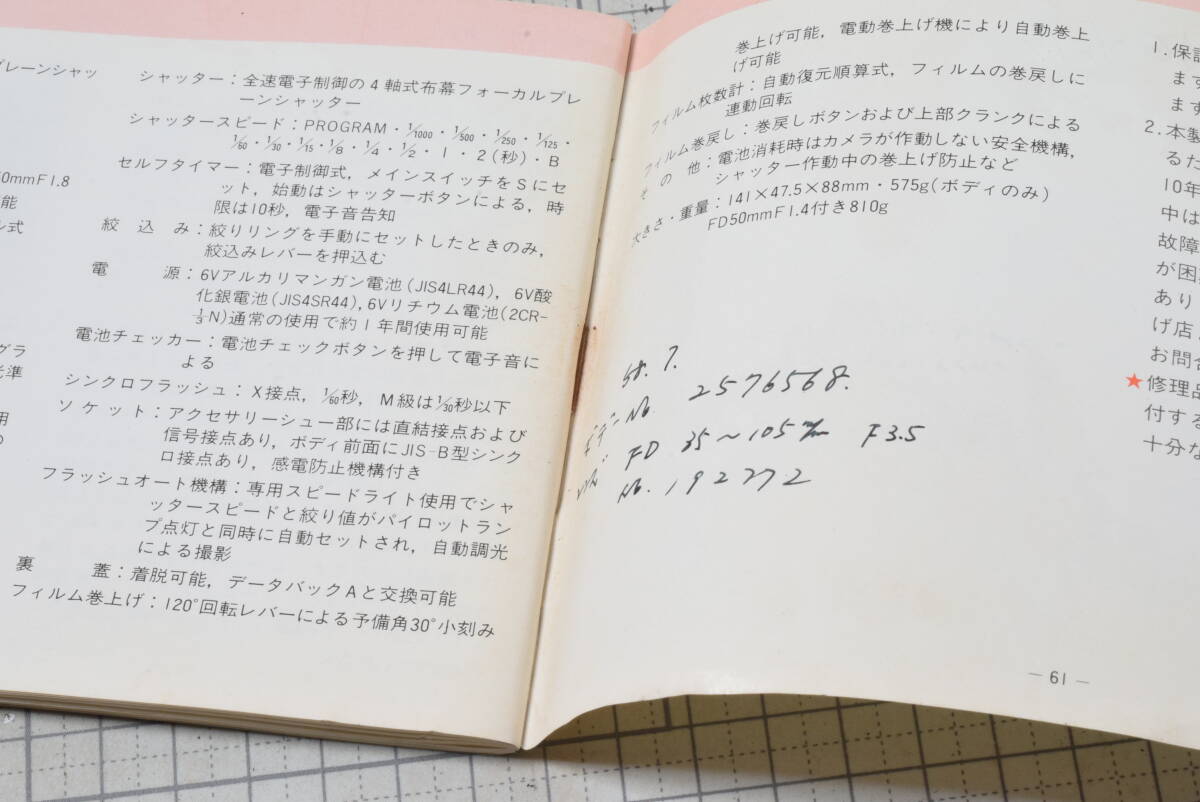 プレーンシャッ
50mmF1.8
シャッター：全速電子制御の4軸式布幕フォーカルプレ
ーンシャッター
シャッタースピード：PROGRAM・1/1000・1/500・1/250・1/125・
1/60・1/30・1/15・1/8・1/4・1/2・1・2(秒)・B
セルフタイマー：電子制御式，メインスイッチをSにセ
ット，始動はシャッターボタンによる，時
限は10秒，電子音告知
絞込み：絞りリングを手動にセットしたときのみ，
絞込みレバーを押込む
電源：6Vアルカリマンガン電池(JIS4LR44)，6V酸
化銀電池(JIS4SR44)，6Vリチウム電池(2CR-
1/3N)通常の使用で約1年間使用可能
電池チェッカー：電池チェックボタンを押して電子音に
よる
シンクロフラッシュ：X接点，1/60秒，M級は1/30秒以下
ソケット：アクセサリーシュー部には直結接点および
信号接点あり，ボディ前面にJIS-B型シンク
ロ接点あり，感電防止機構付き
フラッシュオート機構：専用スピードライト使用でシャ
ッタースピードと絞り値がパイロットラン
プ点灯と同時に自動セットされ，自動調光
による撮影
裏蓋：着脱可能，データバックAと交換可能
フィルム巻上げ：120°回転レバーによる予備角30°小刻み
巻上げ可能，電動巻上げ機により自動巻上
げ可能
フィルム枚数計：自動復元順算式，フィルムの巻戻しに
連動回転
フィルム巻戻し：巻戻しボタンおよび上部クランクによる
その他：電池消耗時はカメラが作動しない安全機構，
シャッター作動中の巻上げ防止など
大きさ・重量：141×47.5×88mm・575g(ボディのみ)
FD50mmF1.4付き810g
58.7.
ボデーNo. 2576568.
レンズ FD 35〜105m/m F3.5
No. 192272
― 61 ―
1.保証
ます
ます
2.本製
るた
10年
中は
故障
が困
あり
げ店
お問合
★修理品
付する
十分な